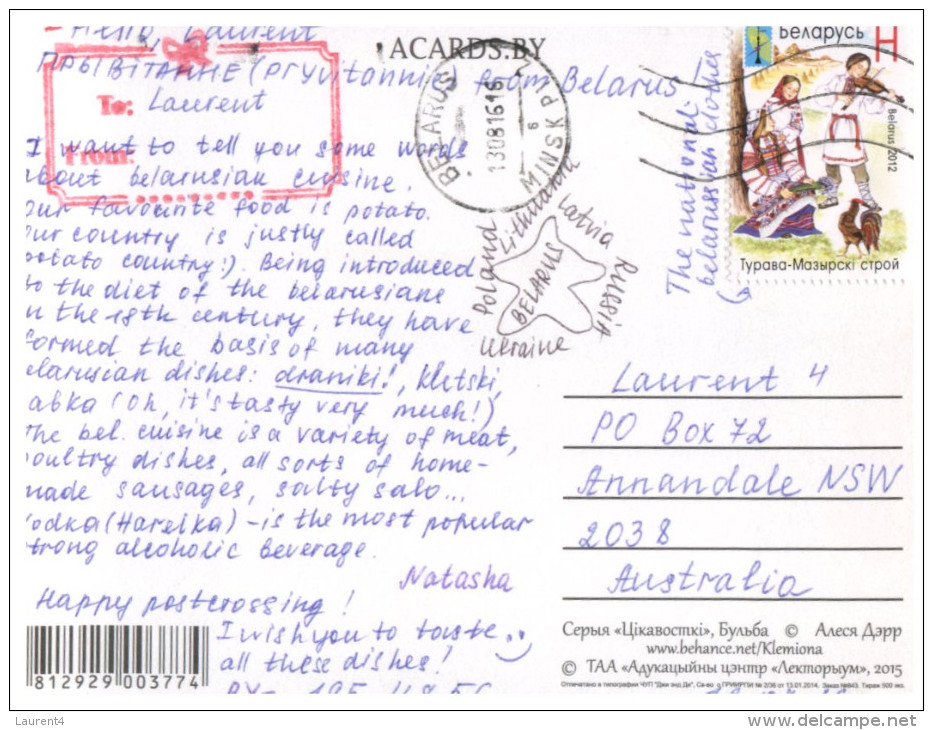 Hello, Laurent
ПРЫВІТАННЕ (pryvitannie) from Belarus
To: Laurent
From:
I want to tell you some words
about belarusian cuisine.
Our favourite food is potato.
Our country is justly called
potato country :). Being introduced
to the diet of the belarusians
in the 18th century, they have
formed the basis of many
belarusian dishes: draniki!, kletski,
babka (Oh, it's tasty very much!)
The bel. cuisine is a variety of meat,
poultry dishes, all sorts of home-
made sausages, salty salo...
Vodka (Harelka) - is the most popular
strong alcoholic beverage.
Natasha
Happy postcrossing!
I wish you to taste
all these dishes!
812929 003774
ACARDS.BY
BELARUS
130816 16
MINSK PI
6
Poland
Lithuania
Latvia
russia
Ukraine
BELARUS
The national
belarussian clothes
Беларусь
H
Belarus 2012
Турава-Мазырскі строй
Laurent 4
PO Box 72
Annandale NSW
2038
Australia
Серыя «Цікавосткі», Бульба © Алеся Дэрр
www.behance.net/Klemiona
© ТАА «Адукацыйны цэнтр «Лекторыум», 2015
Laurent4
www.delcampe.net